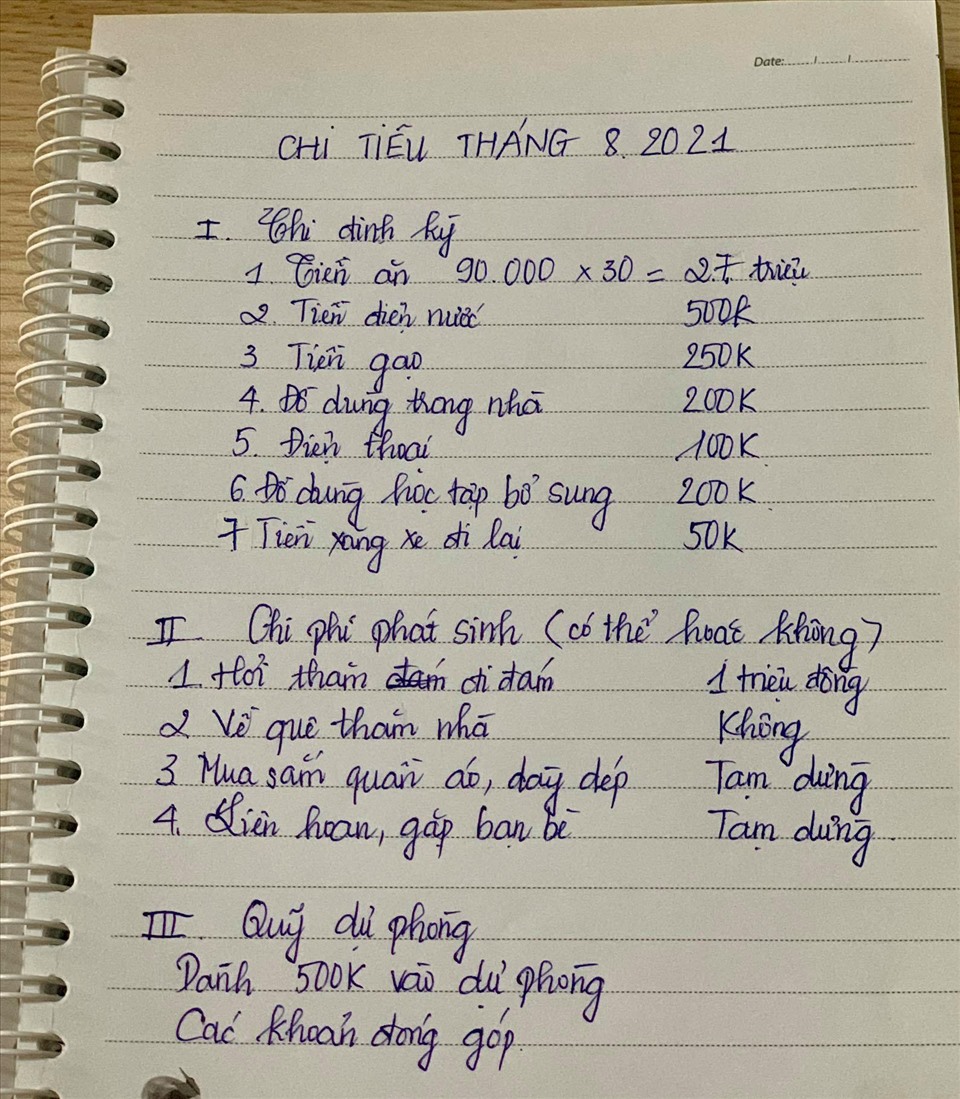 Date:....../....../......
CHI TIÊU THÁNG 8.2021
I. Chi định kỳ
1. Tiền ăn 90.000 x 30 = 2.7 triệu
2. Tiền điện nước 500K
3 Tiền gạo 250K
4. Đồ dùng trong nhà 200K
5. Điện thoại 100K
6. Đồ dùng học tập bổ sung 200K
7 Tiền xăng xe đi lại 50K
II Chi phí phát sinh (có thể hoặc không)
1. Hỏi thăm đám đi đám 1 triệu đồng
2 Về quê thăm nhà Không
3 Mua sắm quần áo, dày dép Tạm dừng
4. Liên hoan, gặp bạn bè Tạm dừng.
III. Quỹ dự phòng
Dành 500K vào dự phòng
Các khoản đóng góp.